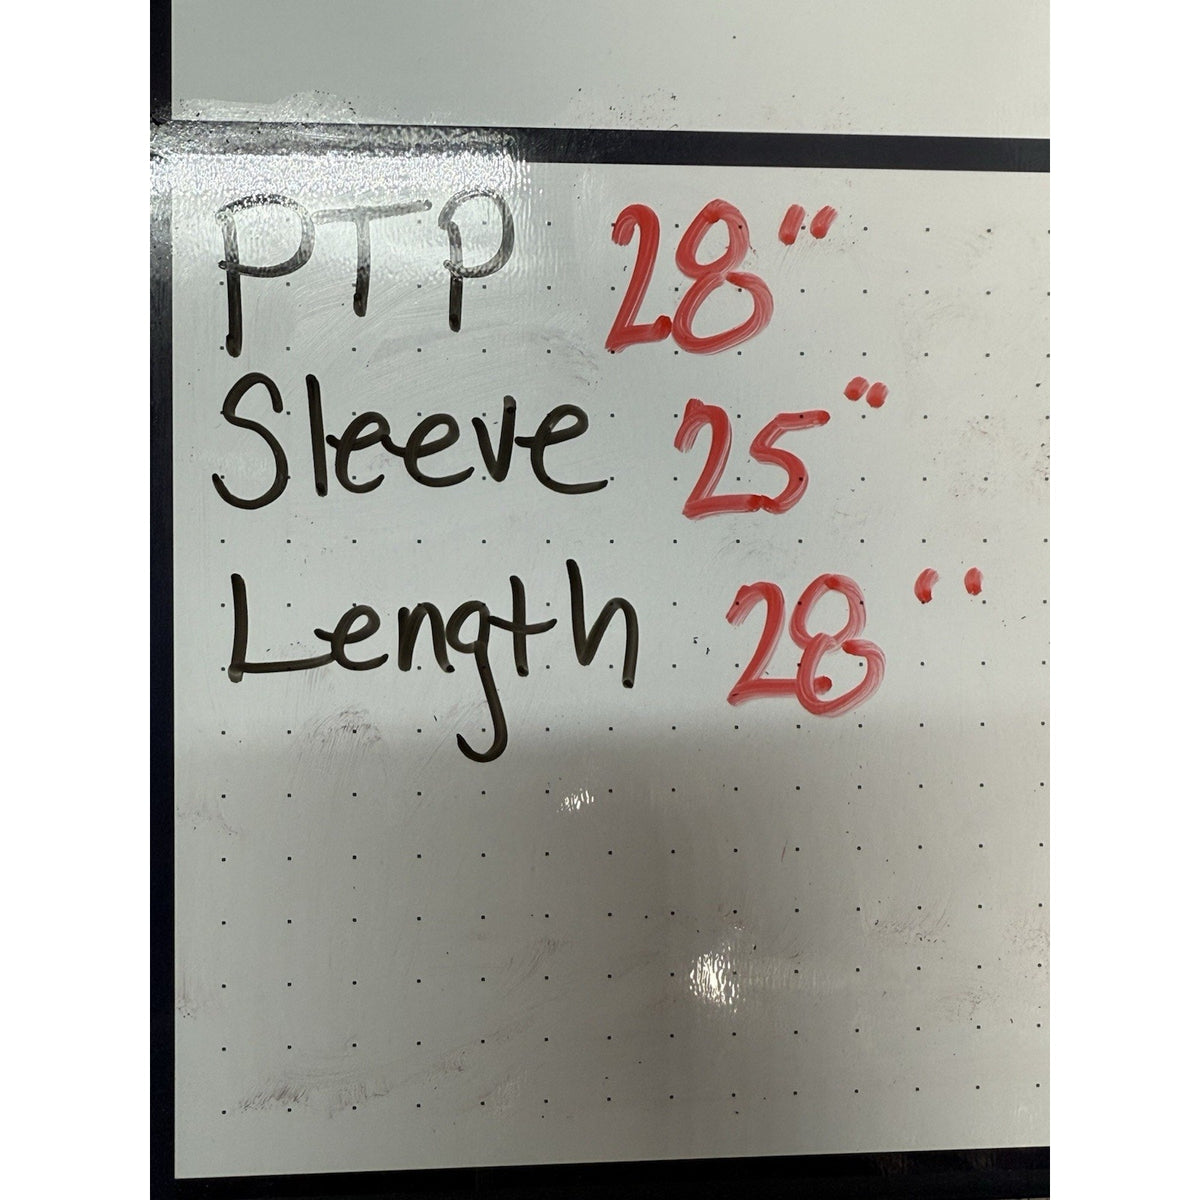 PTP 28"
Sleeve 25"
Length 28"